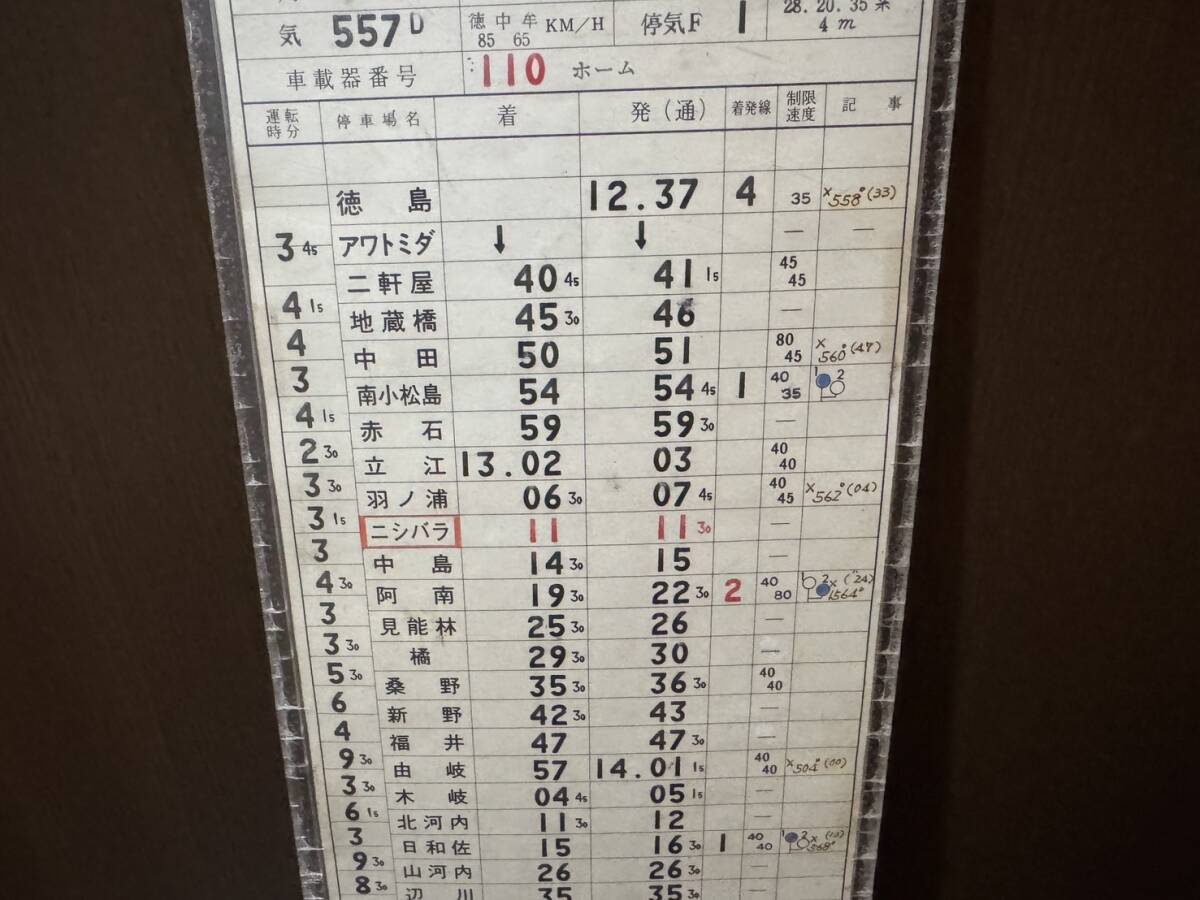 気 557D 徳中牟 85 65 KM/H 停気F 1 28.20.35 4m
車載器番号 110 ホーム
運転時分 停車場名 着 発(通) 着発線 制限速度 記事
徳島 12.37 4 35 ×558D(33)
3 45 アワトミダ ↓ ↓ — —
二軒屋 40 45 41 15 45 45
4 15 地蔵橋 45 30 46 —
4 中田 50 51 80 45 ×560D(47)
3 南小松島 54 54 45 1 40 35 1 2
4 15 赤石 59 59 30 —
2 30 立江 13.02 03 40 40
3 30 羽ノ浦 06 30 07 45 40 45 ×562D(04)
3 15 ニシバラ 11 11 30 —
3 中島 14 30 15 —
4 30 阿南 19 30 22 30 2 40 80 2 × (24) 564D
3 見能林 25 30 26 —
3 30 橘 29 30 30 —
5 30 桑野 35 30 36 30 40 40
6 新野 42 30 43 —
4 福井 47 47 30 —
9 30 由岐 57 14.01 15 40 40 ×504D(00)
3 30 木岐 04 45 05 15 —
6 15 北河内 11 30 12 —
3 日和佐 15 16 30 1 40 40 1 2 × 568D
9 30 山河内 26 26 30 —
8 30 辺川 35 35 30 —